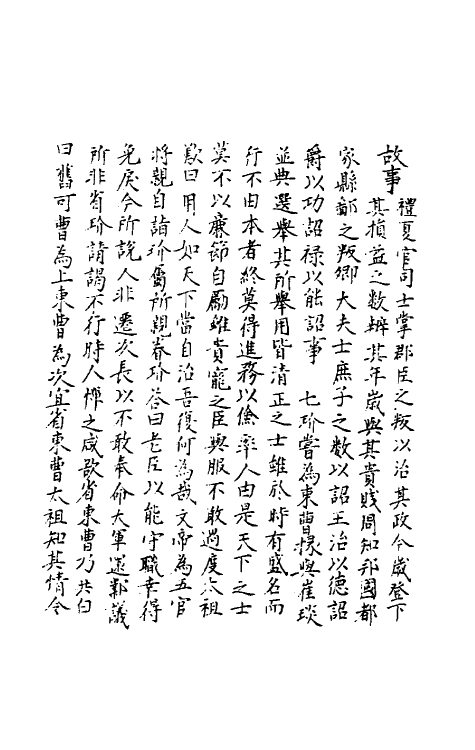 故事 禮夏官司士掌郡臣之版以治其政令歲登下
其損益之數辨其年歲與其貴賤周知邦國都
家縣鄙之版卿大夫士庶子之數以詔王治以德詔
爵以功詔禄以能詔事 七玠嘗為東曹掾與崔琰
並典選舉其所舉用皆清正之士雖於時有盛名而
行不由本者終莫得進務以儉率人由是天下之士
莫不以廉節自勵雖貴寵之臣輿服不敢過度太祖
歎曰用人如天下當自治吾復何為哉文帝為五官
將親自詣玠屬所親眷玠荅曰老臣以能守職幸得
免戾今所說人非遷次長以不敢奉命大軍還鄴議
所非省玠請謁不行時人憚之咸欲省東曹乃共白
曰舊可曹為上東曹為次宜省東曹太祖知其情令